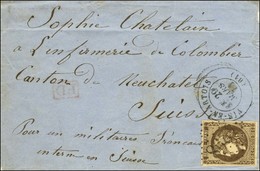 Sophie Chatelain
à L'infirmerie de Colombier
Canton de Neuchatel
Suisse
P.P.
Pour un militaire français
interné en Suisse